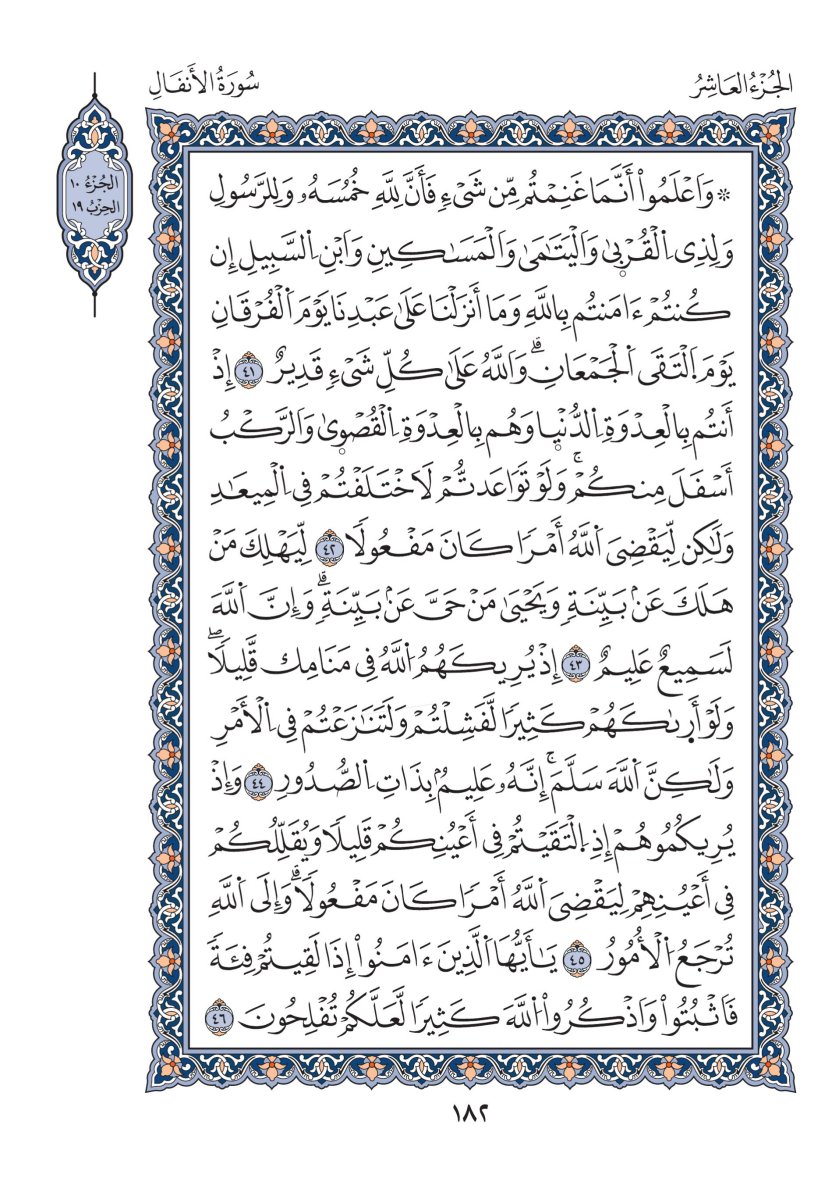 الجُزْءُ العَاشِرُ
سُورَةُ الأَنفَالِ
الجُزْءُ ١٠
الحِزْبُ ١٩
* وَاَعْلَمُوٓاْ أَنَّمَا غَنِمْتُم مِّن شَيْءٖ فَأَنَّ لِلَّهِ خُمُسَهُۥ وَلِلرَّسُولِ
وَلِذِي اِ۬لْقُرْب۪ىٰ وَالْيَتَٰمَىٰ وَالْمَسَٰكِينِ وَابْنِ اِ۬لسَّبِيلِ إِن
كُنتُمْ ءَامَنتُم بِاللَّهِ وَمَآ أَنزَلْنَا عَلَىٰ عَبْدِنَا يَوْمَ اَ۬لْفُرْقَانِ
يَوْمَ اَ۬لْتَقَى اَ۬لْجَمْعَانِۗ وَاللَّهُ عَلَىٰ كُلِّ شَيْءٖ قَدِيرٌ ٤١ إِذْ
أَنتُم بِالْعِدْوَةِ اِ۬لدُّنْي۪ا وَهُم بِالْعِدْوَةِ اِ۬لْقُصْو۪ىٰ وَالرَّكْبُ
أَسْفَلَ مِنكُمْۚ وَلَوْ تَوَاعَدتُّمْ لَاخْتَلَفْتُمْ فِي اِ۬لْمِيعَٰدِ
وَلَٰكِن لِّيَقْضِيَ اَ۬للَّهُ أَمْرٗا كَانَ مَفْعُولٗا ٤٢ لِّيَهْلِكَ مَنْ
هَلَكَ عَنۢ بَيِّنَةٖ وَيَحْيَىٰ مَنْ حَيَّ عَنۢ بَيِّنَةٖۗ وَإِنَّ اَ۬للَّهَ
لَسَمِيعٌ عَلِيمٌ ٤٣ إِذْ يُرِيكَهُمُ اُ۬للَّهُ فِي مَنَامِكَ قَلِيلٗاۖ
وَلَوْ أَر۪ىٰكَهُمْ كَثِيرٗا لَّفَشِلْتُمْ وَلَتَنَٰزَعْتُمْ فِي اِ۬لْأَمْرِ
وَلَٰكِنَّ اَ۬للَّهَ سَلَّمَۚ إِنَّهُۥ عَلِيمُۢ بِذَاتِ اِ۬لصُّدُورِ ٤٤ وَإِذْ
يُرِيكُمُوهُمْ إِذِ اِ۬لْتَقَيْتُمْ فِيٓ أَعْيُنِكُمْ قَلِيلٗا وَيُقَلِّلُكُمْ
فِيٓ أَعْيُنِهِمْ لِيَقْضِيَ اَ۬للَّهُ أَمْرٗا كَانَ مَفْعُولٗاۗ وَإِلَى اَ۬للَّهِ
تُرْجَعُ اُ۬لْأُمُورُ ٤٥ يَٰٓأَيُّهَا اَ۬لَّذِينَ ءَامَنُوٓاْ إِذَا لَقِيتُمْ فِئَةٗ
فَاثْبُتُواْ وَاذْكُرُواْ اُ۬للَّهَ كَثِيرٗا لَّعَلَّكُمْ تُفْلِحُونَ ٤٦
١٨٢